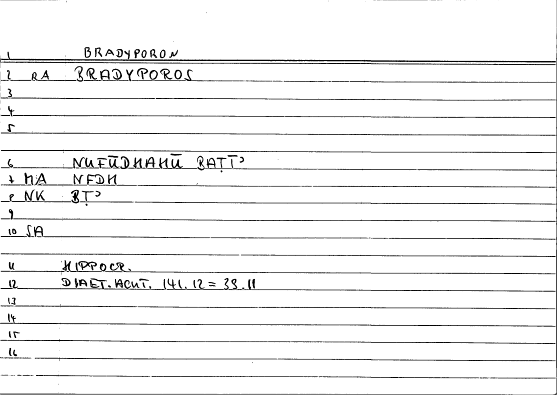 1 BRADYPORON
2 RA BRADYPOROS
3
4
5
6 NUFŪDHAHŪ BAṬĪʾ
7 MA NFDH
8 NK BṬʾ
9
10 SA
11 HIPPOCR.
12 DIAET. ACUT. 141. 12 = 39. 11
13
14
15
16